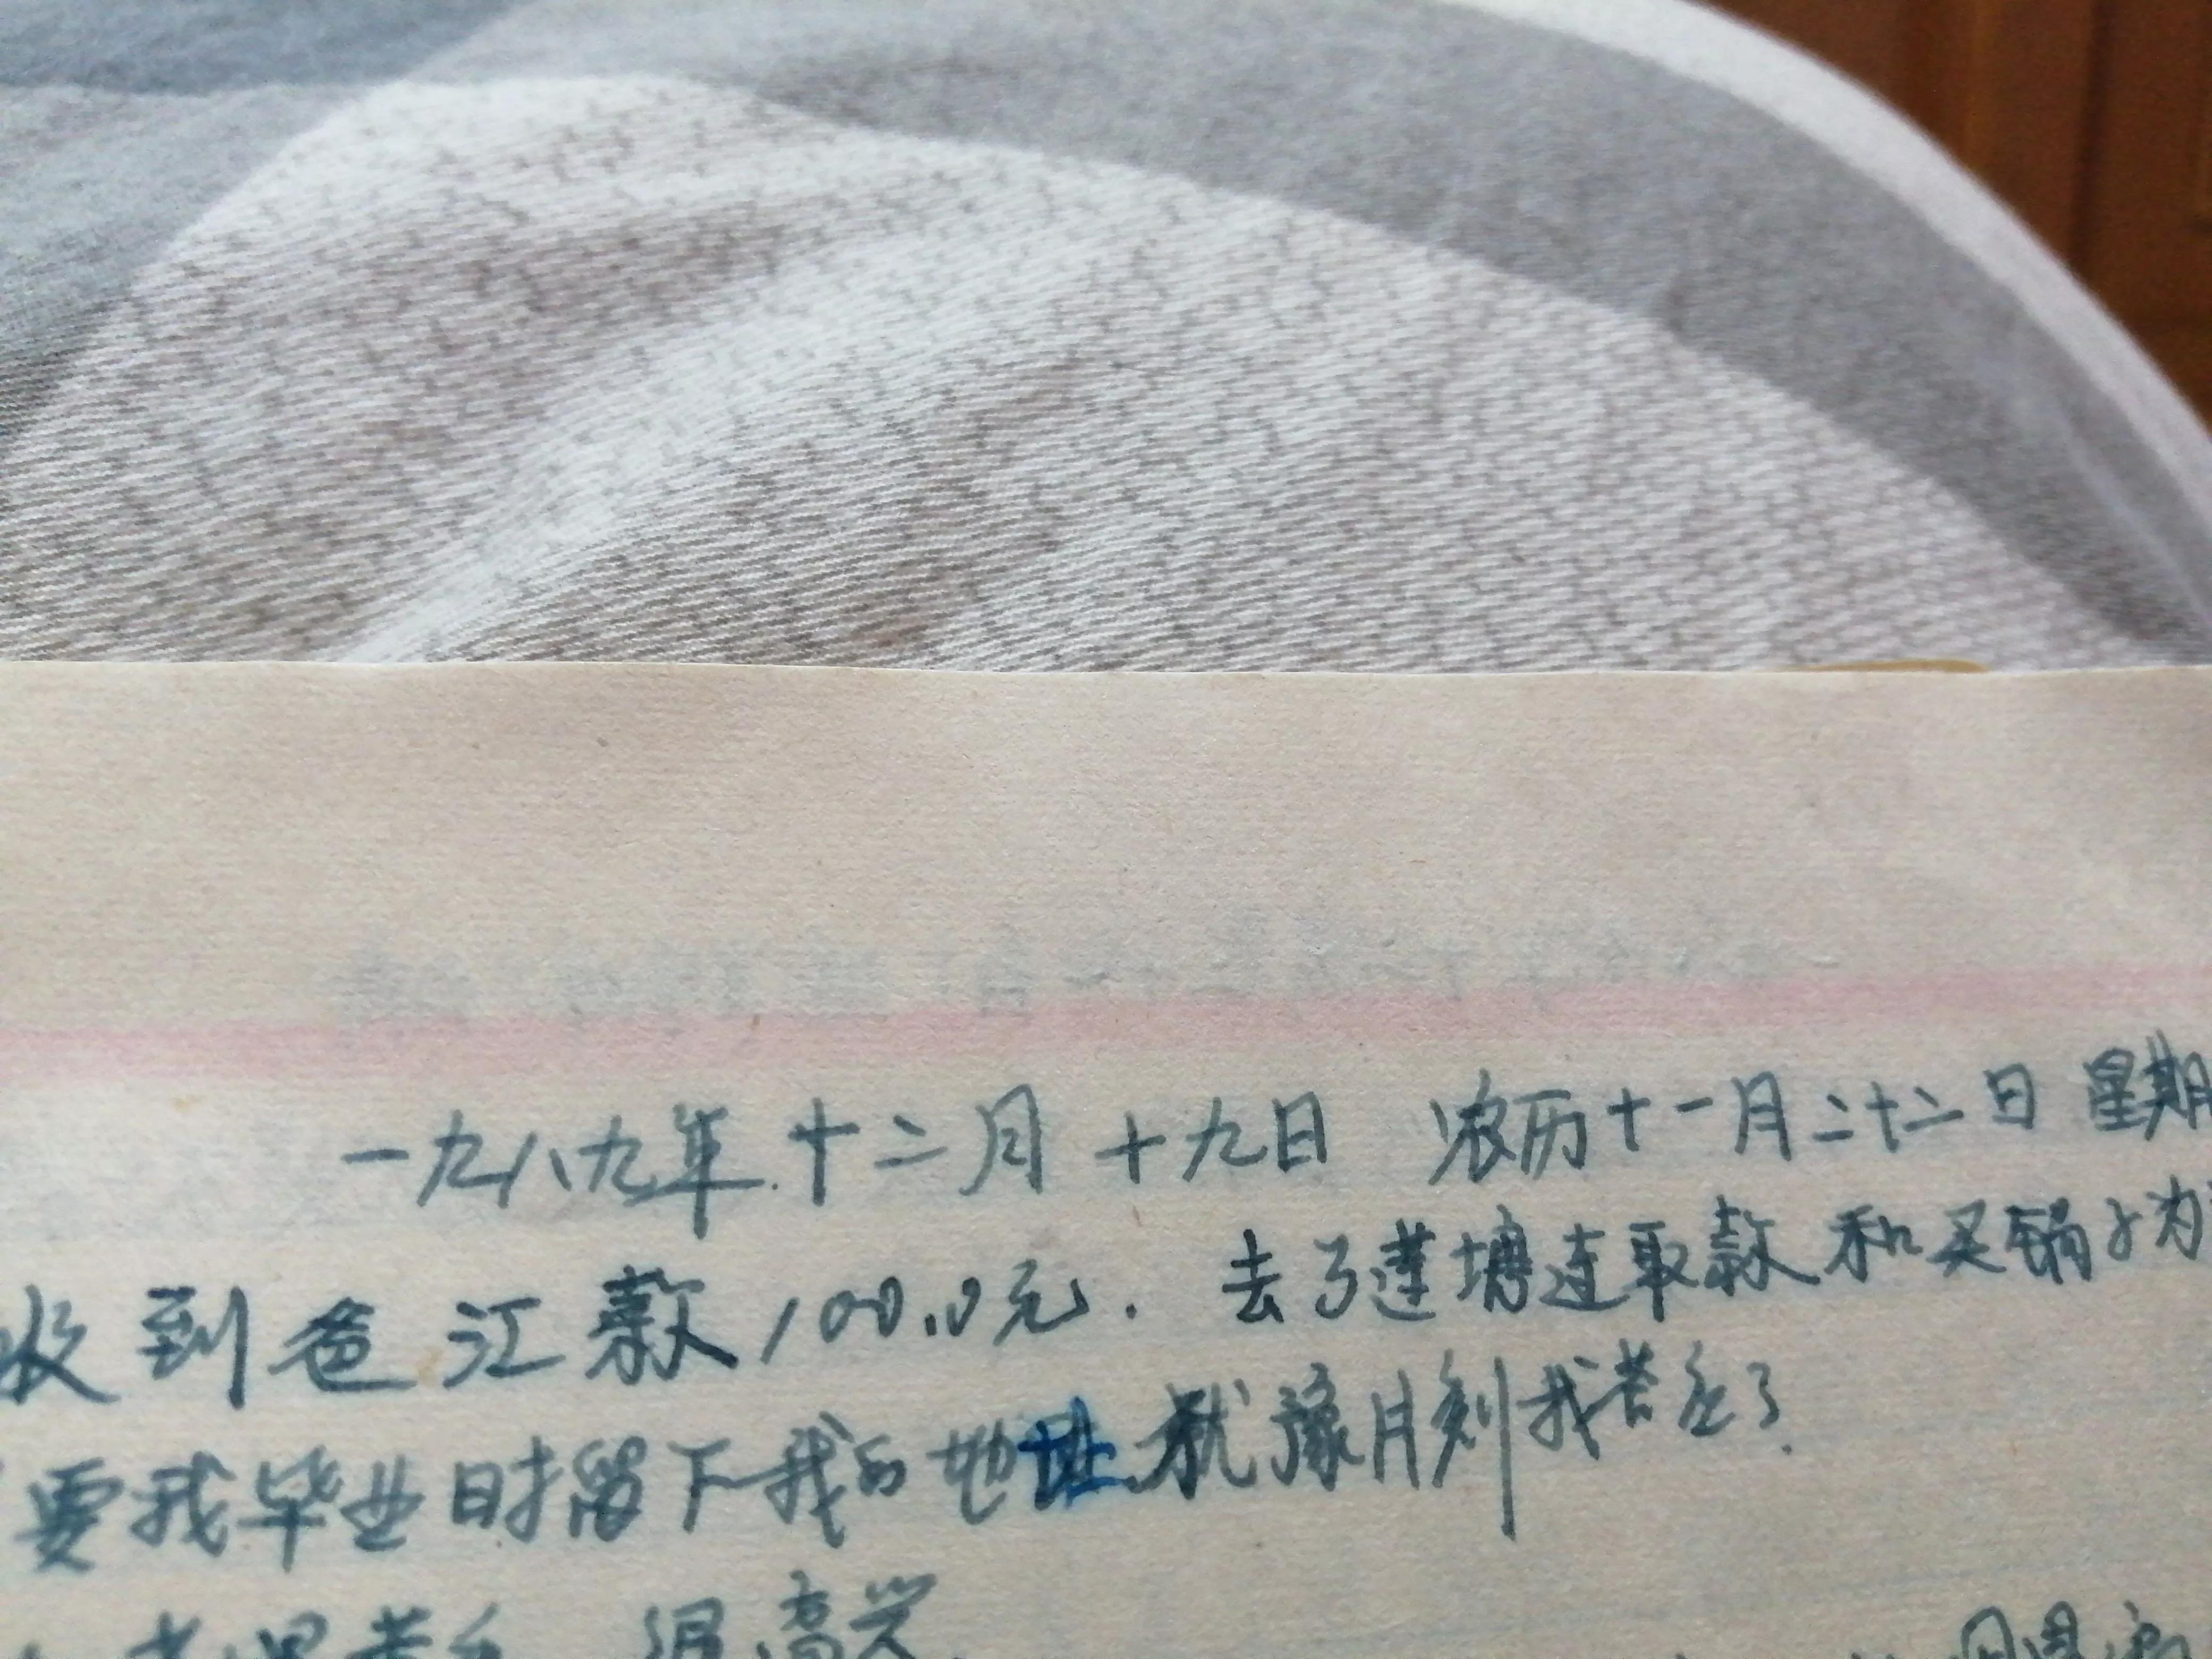 一九八九年.十二月十九日 农历十一月二十二日 星期
收到爸汇款100.0元. 去了莲塘连取款和买锅子为
要我毕业时留下我的地址.就像片刻我苦
很高兴.